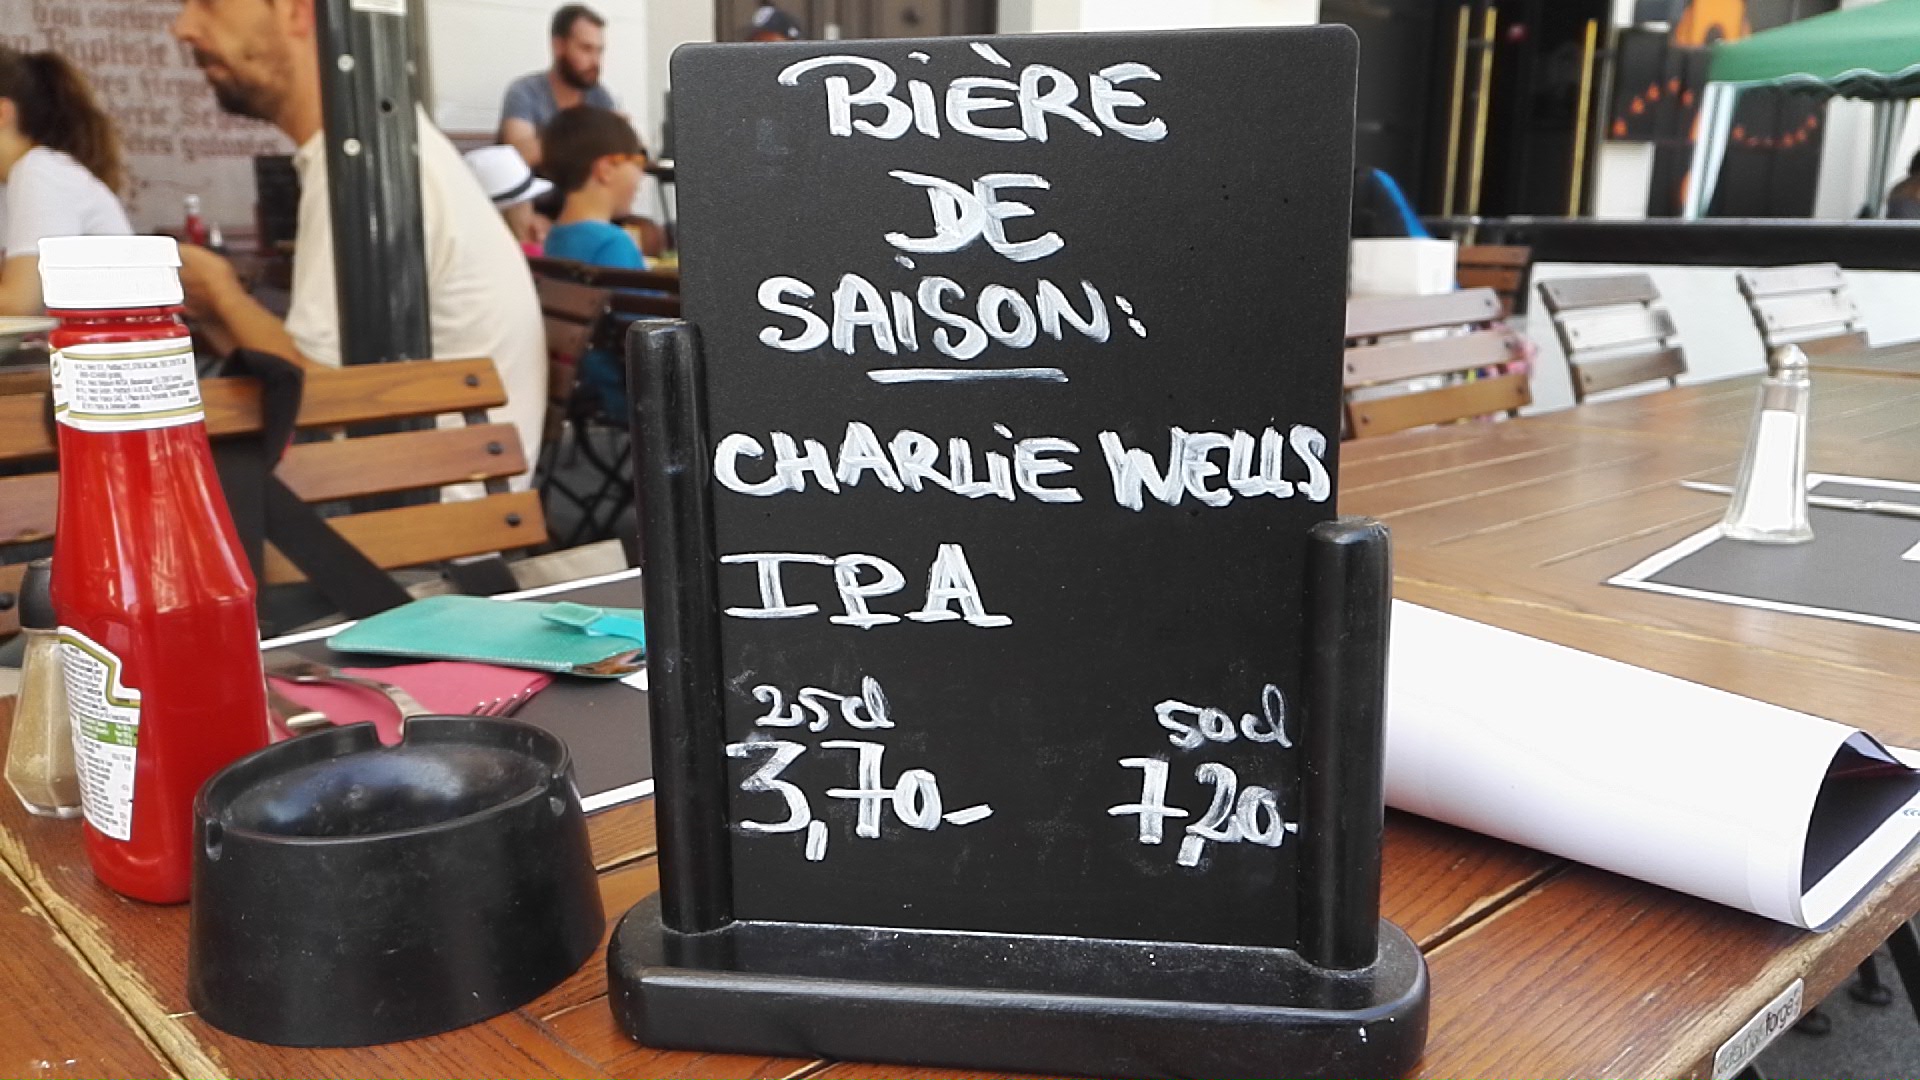 BIÈRE
DE
SAISON:
CHARLIE WELLS
IPA
25cl 50cl
3,70- 7,20-